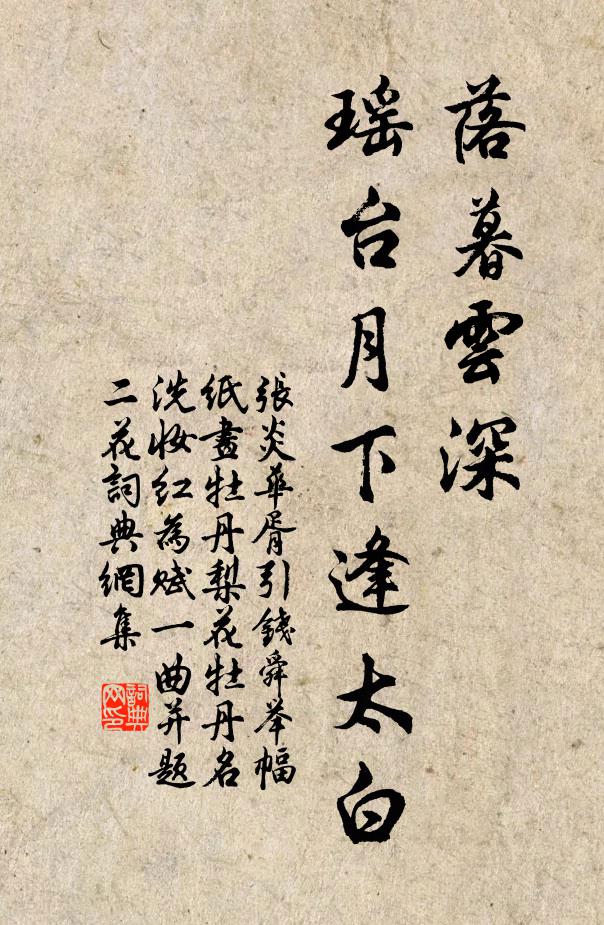 落暮雲深
瑶台月下逢太白
張炎華胥引錢舜举幅
紙畫牡丹梨花牡丹名
洗妆红為赋一曲并题
二花詞典網集
詞典网印